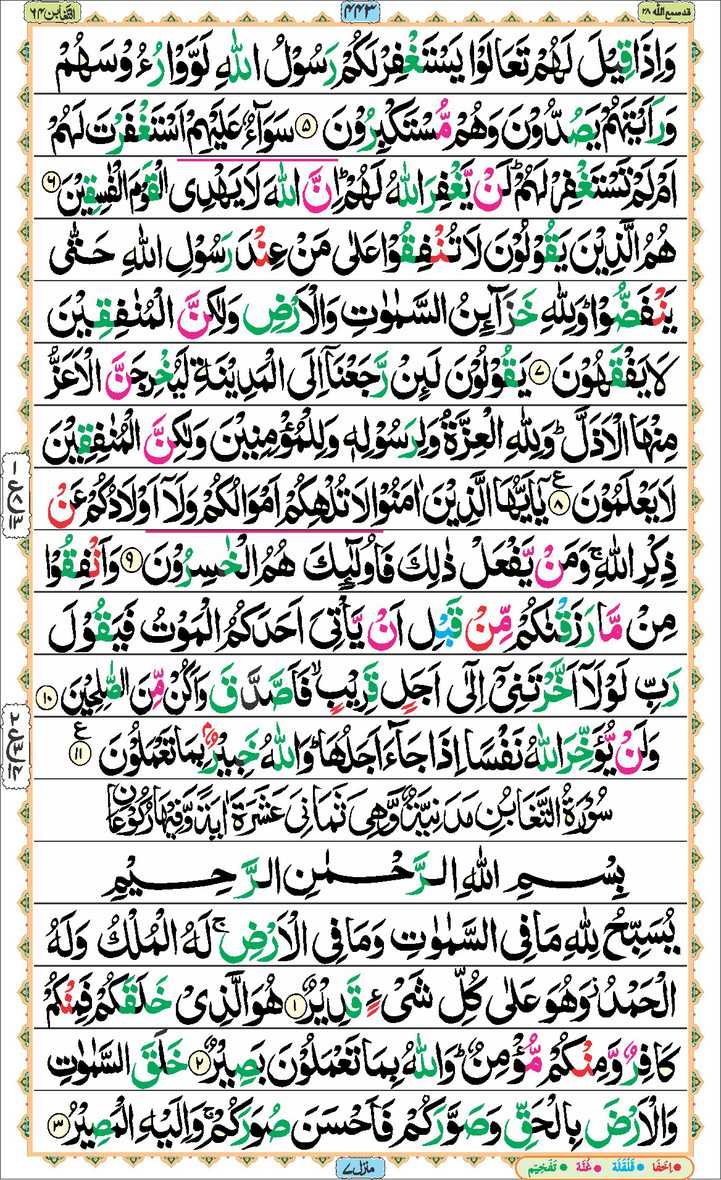 قد سمع اللہ ۲۸ ۴۴۳ التغابن ۶۴
وَاِذَا قِيۡلَ لَهُمۡ تَعَالَوۡا يَسۡتَغۡفِرۡ لَكُمۡ رَسُوۡلُ اللّٰهِ لَوَّوۡا رُءُوۡسَهُمۡ
وَرَاَيۡتَهُمۡ يَصُدُّوۡنَ وَهُمۡ مُّسۡتَكۡبِرُوۡنَ ۵ سَوَآءٌ عَلَيۡهِمۡ اَسۡتَغۡفَرۡتَ لَهُمۡ
اَمۡ لَمۡ تَسۡتَغۡفِرۡ لَهُمۡؕ لَنۡ يَّغۡفِرَ اللّٰهُ لَهُمۡؕ اِنَّ اللّٰهَ لَا يَهۡدِى الۡقَوۡمَ الۡفٰسِقِيۡنَ ۶
هُمُ الَّذِيۡنَ يَقُوۡلُوۡنَ لَا تُنۡفِقُوۡا عَلٰى مَنۡ عِنۡدَ رَسُوۡلِ اللّٰهِ حَتّٰى
يَنۡفَضُّوۡاؕ وَلِلّٰهِ خَزَآئِنُ السَّمٰوٰتِ وَالۡاَرۡضِ وَلٰكِنَّ الۡمُنٰفِقِيۡنَ
لَا يَفۡقَهُوۡنَ ۷ يَقُوۡلُوۡنَ لَئِنۡ رَّجَعۡنَاۤ اِلَى الۡمَدِيۡنَةِ لَيُخۡرِجَنَّ الۡاَعَزُّ
مِنۡهَا الۡاَذَلَّؕ وَلِلّٰهِ الۡعِزَّةُ وَلِرَسُوۡلِهٖ وَلِلۡمُؤۡمِنِيۡنَ وَلٰكِنَّ الۡمُنٰفِقِيۡنَ
لَا يَعۡلَمُوۡنَ ۸ ع يٰۤاَيُّهَا الَّذِيۡنَ اٰمَنُوۡا لَا تُلۡهِكُمۡ اَمۡوَالُكُمۡ وَلَاۤ اَوۡلَادُكُمۡ عَنۡ
ذِكۡرِ اللّٰهِۚ وَمَنۡ يَّفۡعَلۡ ذٰلِكَ فَاُولٰٓئِكَ هُمُ الۡخٰسِرُوۡنَ ۹ وَاَنۡفِقُوۡا
مِنۡ مَّا رَزَقۡنٰكُمۡ مِّنۡ قَبۡلِ اَنۡ يَّاۡتِىَ اَحَدَكُمُ الۡمَوۡتُ فَيَقُوۡلَ
رَبِّ لَوۡلَاۤ اَخَّرۡتَنِىۡۤ اِلٰٓى اَجَلٍ قَرِيۡبٍۙ فَاَصَّدَّقَ وَاَكُنۡ مِّنَ الصّٰلِحِيۡنَ ۱۰
وَلَنۡ يُّؤَخِّرَ اللّٰهُ نَفۡسًا اِذَا جَآءَ اَجَلُهَاؕ وَاللّٰهُ خَبِيۡرٌۢ بِمَا تَعۡمَلُوۡنَ ۱۱ ع
سُوۡرَةُ التَّغَابُنِ مَدَنِيَّةٌ وَّهِىَ ثَمَانِىَ عَشَرَةَ اٰيَةً وَّفِيۡهَا رُكُوۡعَانِ
بِسۡمِ اللّٰهِ الرَّحۡمٰنِ الرَّحِيۡمِ
يُسَبِّحُ لِلّٰهِ مَا فِى السَّمٰوٰتِ وَمَا فِى الۡاَرۡضِۚ لَهُ الۡمُلۡكُ وَلَهُ
الۡحَمۡدُ وَهُوَ عَلٰى كُلِّ شَىۡءٍ قَدِيۡرٌ ۱ هُوَ الَّذِىۡ خَلَقَكُمۡ فَمِنۡكُمۡ
كَافِرٌ وَّمِنۡكُمۡ مُّؤۡمِنٌؕ وَاللّٰهُ بِمَا تَعۡمَلُوۡنَ بَصِيۡرٌ ۲ خَلَقَ السَّمٰوٰتِ
وَالۡاَرۡضَ بِالۡحَقِّ وَصَوَّرَكُمۡ فَاَحۡسَنَ صُوَرَكُمۡۚ وَاِلَيۡهِ الۡمَصِيۡرُ ۳
منزل ۷
اخفا قلقلہ غنہ تفخیم